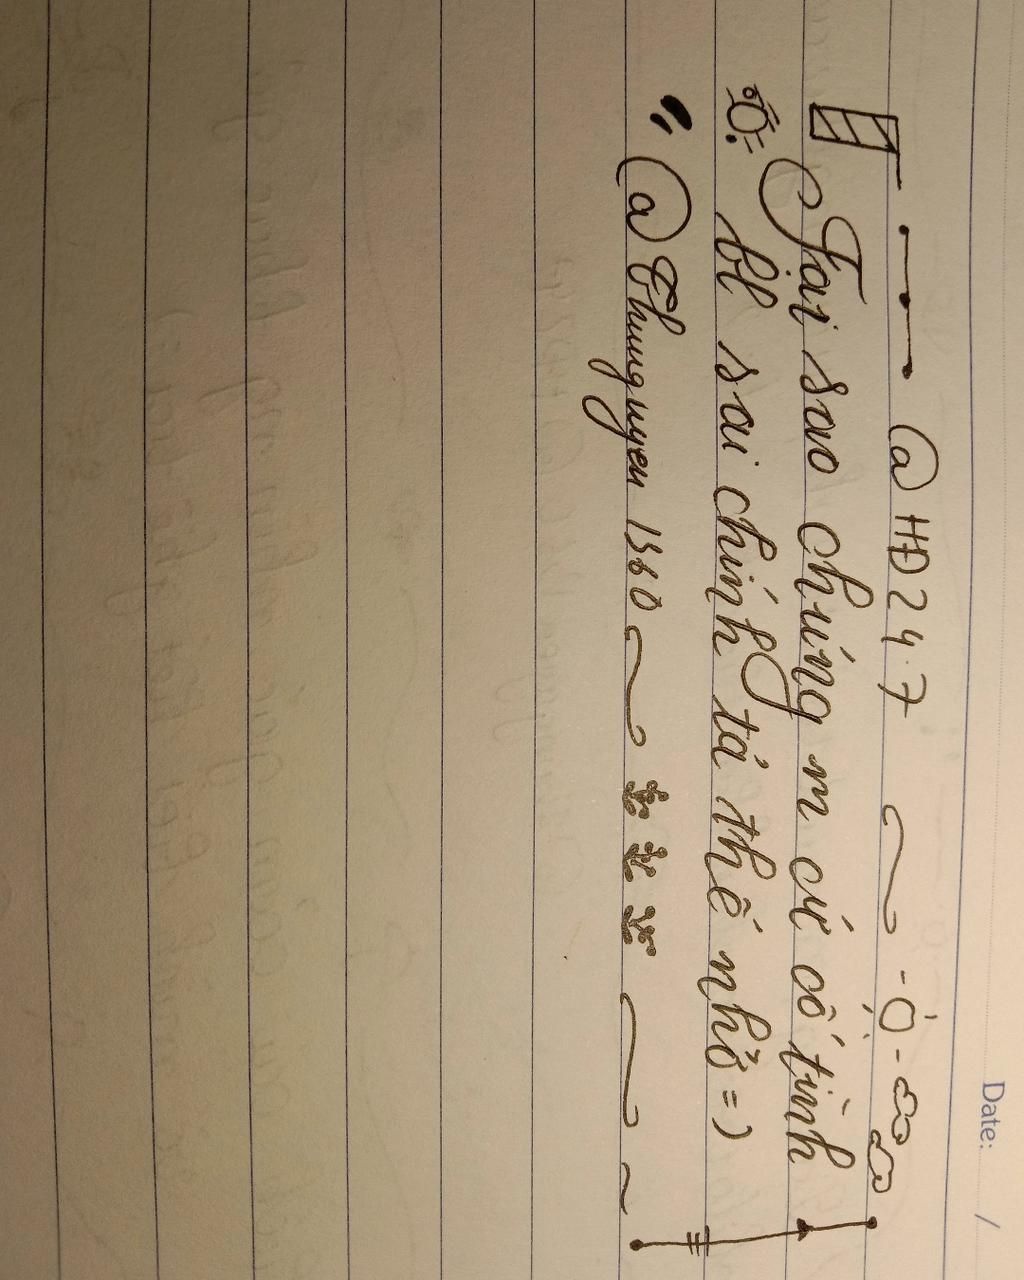 Date: /
@HĐ24.7
Tại sao chúng m cứ cố tình
bl sai chính tả thế nhở =)
@Thunguyen1360